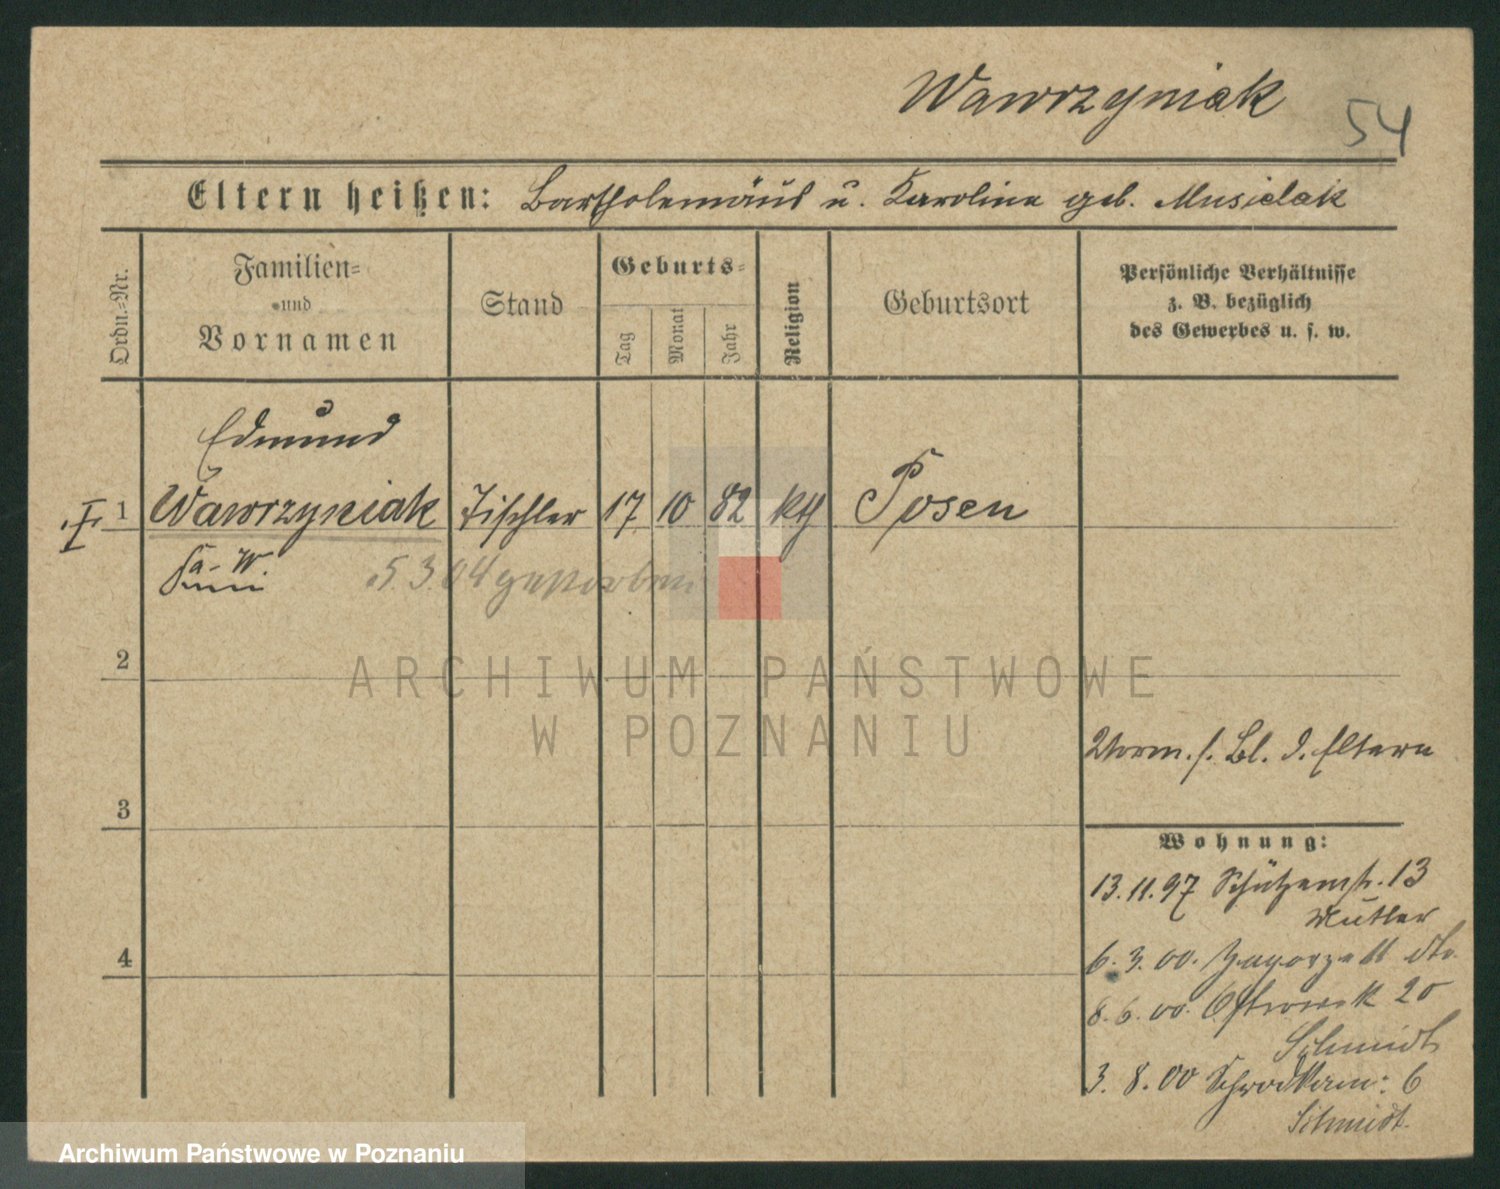 Wawrzyniak
54
Eltern heißen: Bartholomäus u. Karoline geb. Musielak
Ordn.-Nr.
Familien-
und
Vornamen
Stand
Geburts-
Tag
Monat
Jahr
Religion
Geburtsort
Persönliche Verhältnisse
z. B. bezüglich
des Gewerbes u. s. w.
Edmund
I. 1 Wawrzyniak Tischler 17 10 82 kth Posen
5.3.04 gestorben
2
ARCHIWUM PAŃSTWOWE
W POZNANIU
Vorm. s. Bl. d. Eltern
3
Wohnung:
13.11.97 Schützenstr. 13
Mutter
4
6.3.00. dto.
8.6.00. Ostrowek 20
Schmidt
3.8.00 6
Schmidt
Archiwum Państwowe w Poznaniu